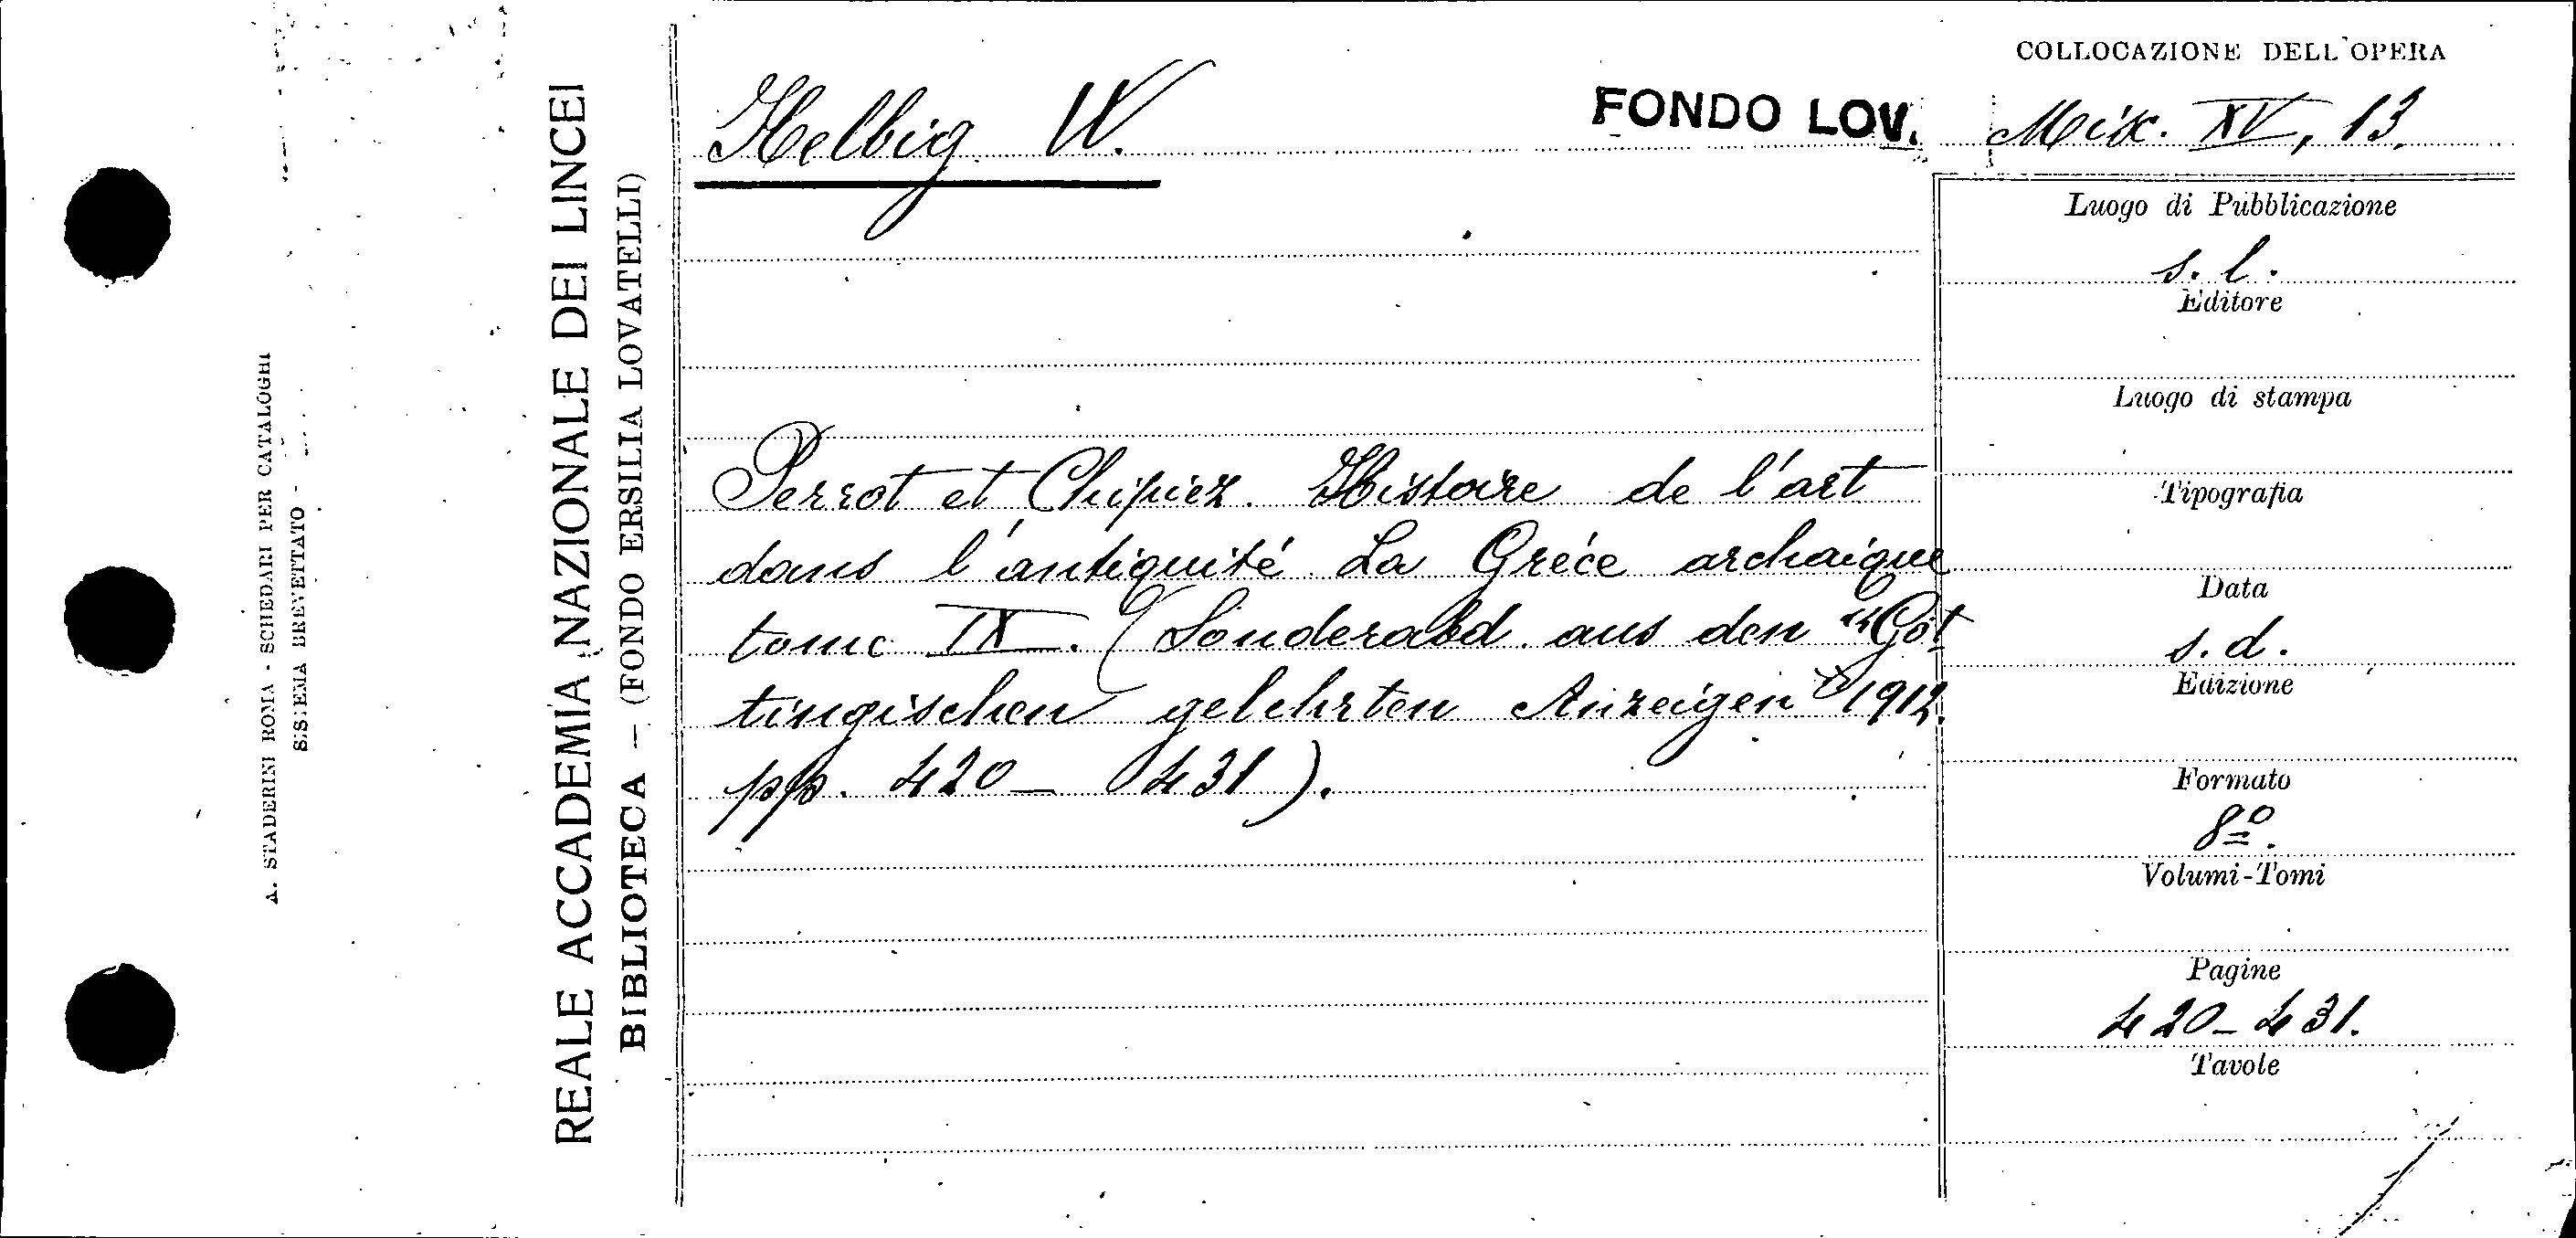 A. STADERINI ROMA - SCHEDARI PER CATALOGHI
SISTEMA BREVETTATO -
REALE ACCADEMIA NAZIONALE DEI LINCEI
BIBLIOTECA — (FONDO ERSILIA LOVATELLI)
Helbig W.
FONDO LOV.
COLLOCAZIONE DELL'OPERA
Misc. XV, 13.
Perrot et Chipiez. Histoire de l'art
dans l'antiquité La Gréce archaique
tome IX. (Sonderabd. aus den "Göt
tingischen gelehrten Anzeigen" 1912.
pp. 420 - 431).
Luogo di Pubblicazione
s. l.
Editore
Luogo di stampa
Tipografia
Data
s. d.
Edizione
Formato
8º.
Volumi-Tomi
Pagine
420-431.
Tavole